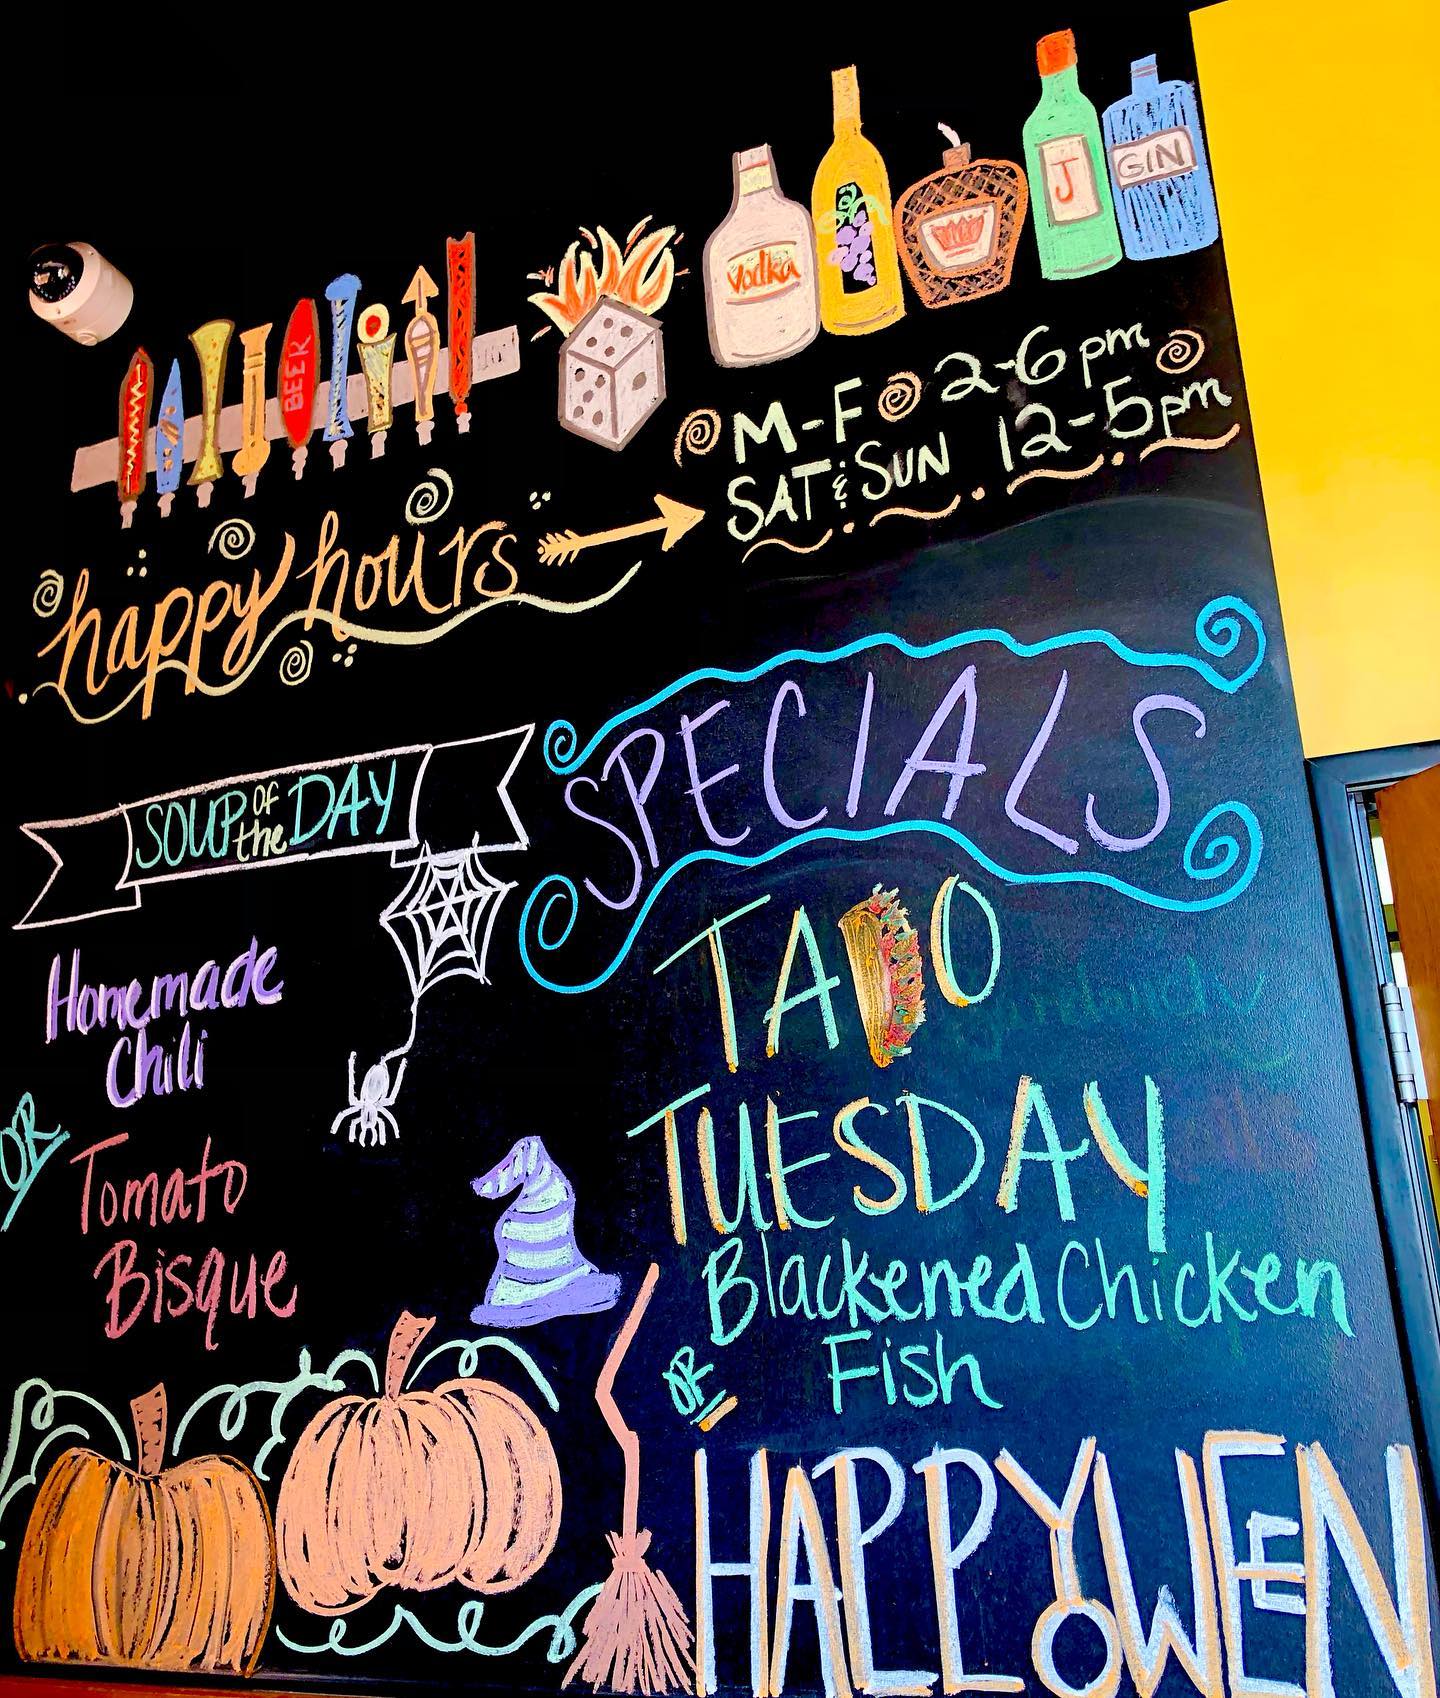 Vodka
J
GIN
BEER
happy hours
M-F 2-6pm
SAT & SUN 12-5pm
SOUP of the DAY
Homemade
Chili
OR
Tomato
Bisque
SPECIALS
TACO
TUESDAY
Blackened Chicken
OR Fish
HAPPYOWEEN